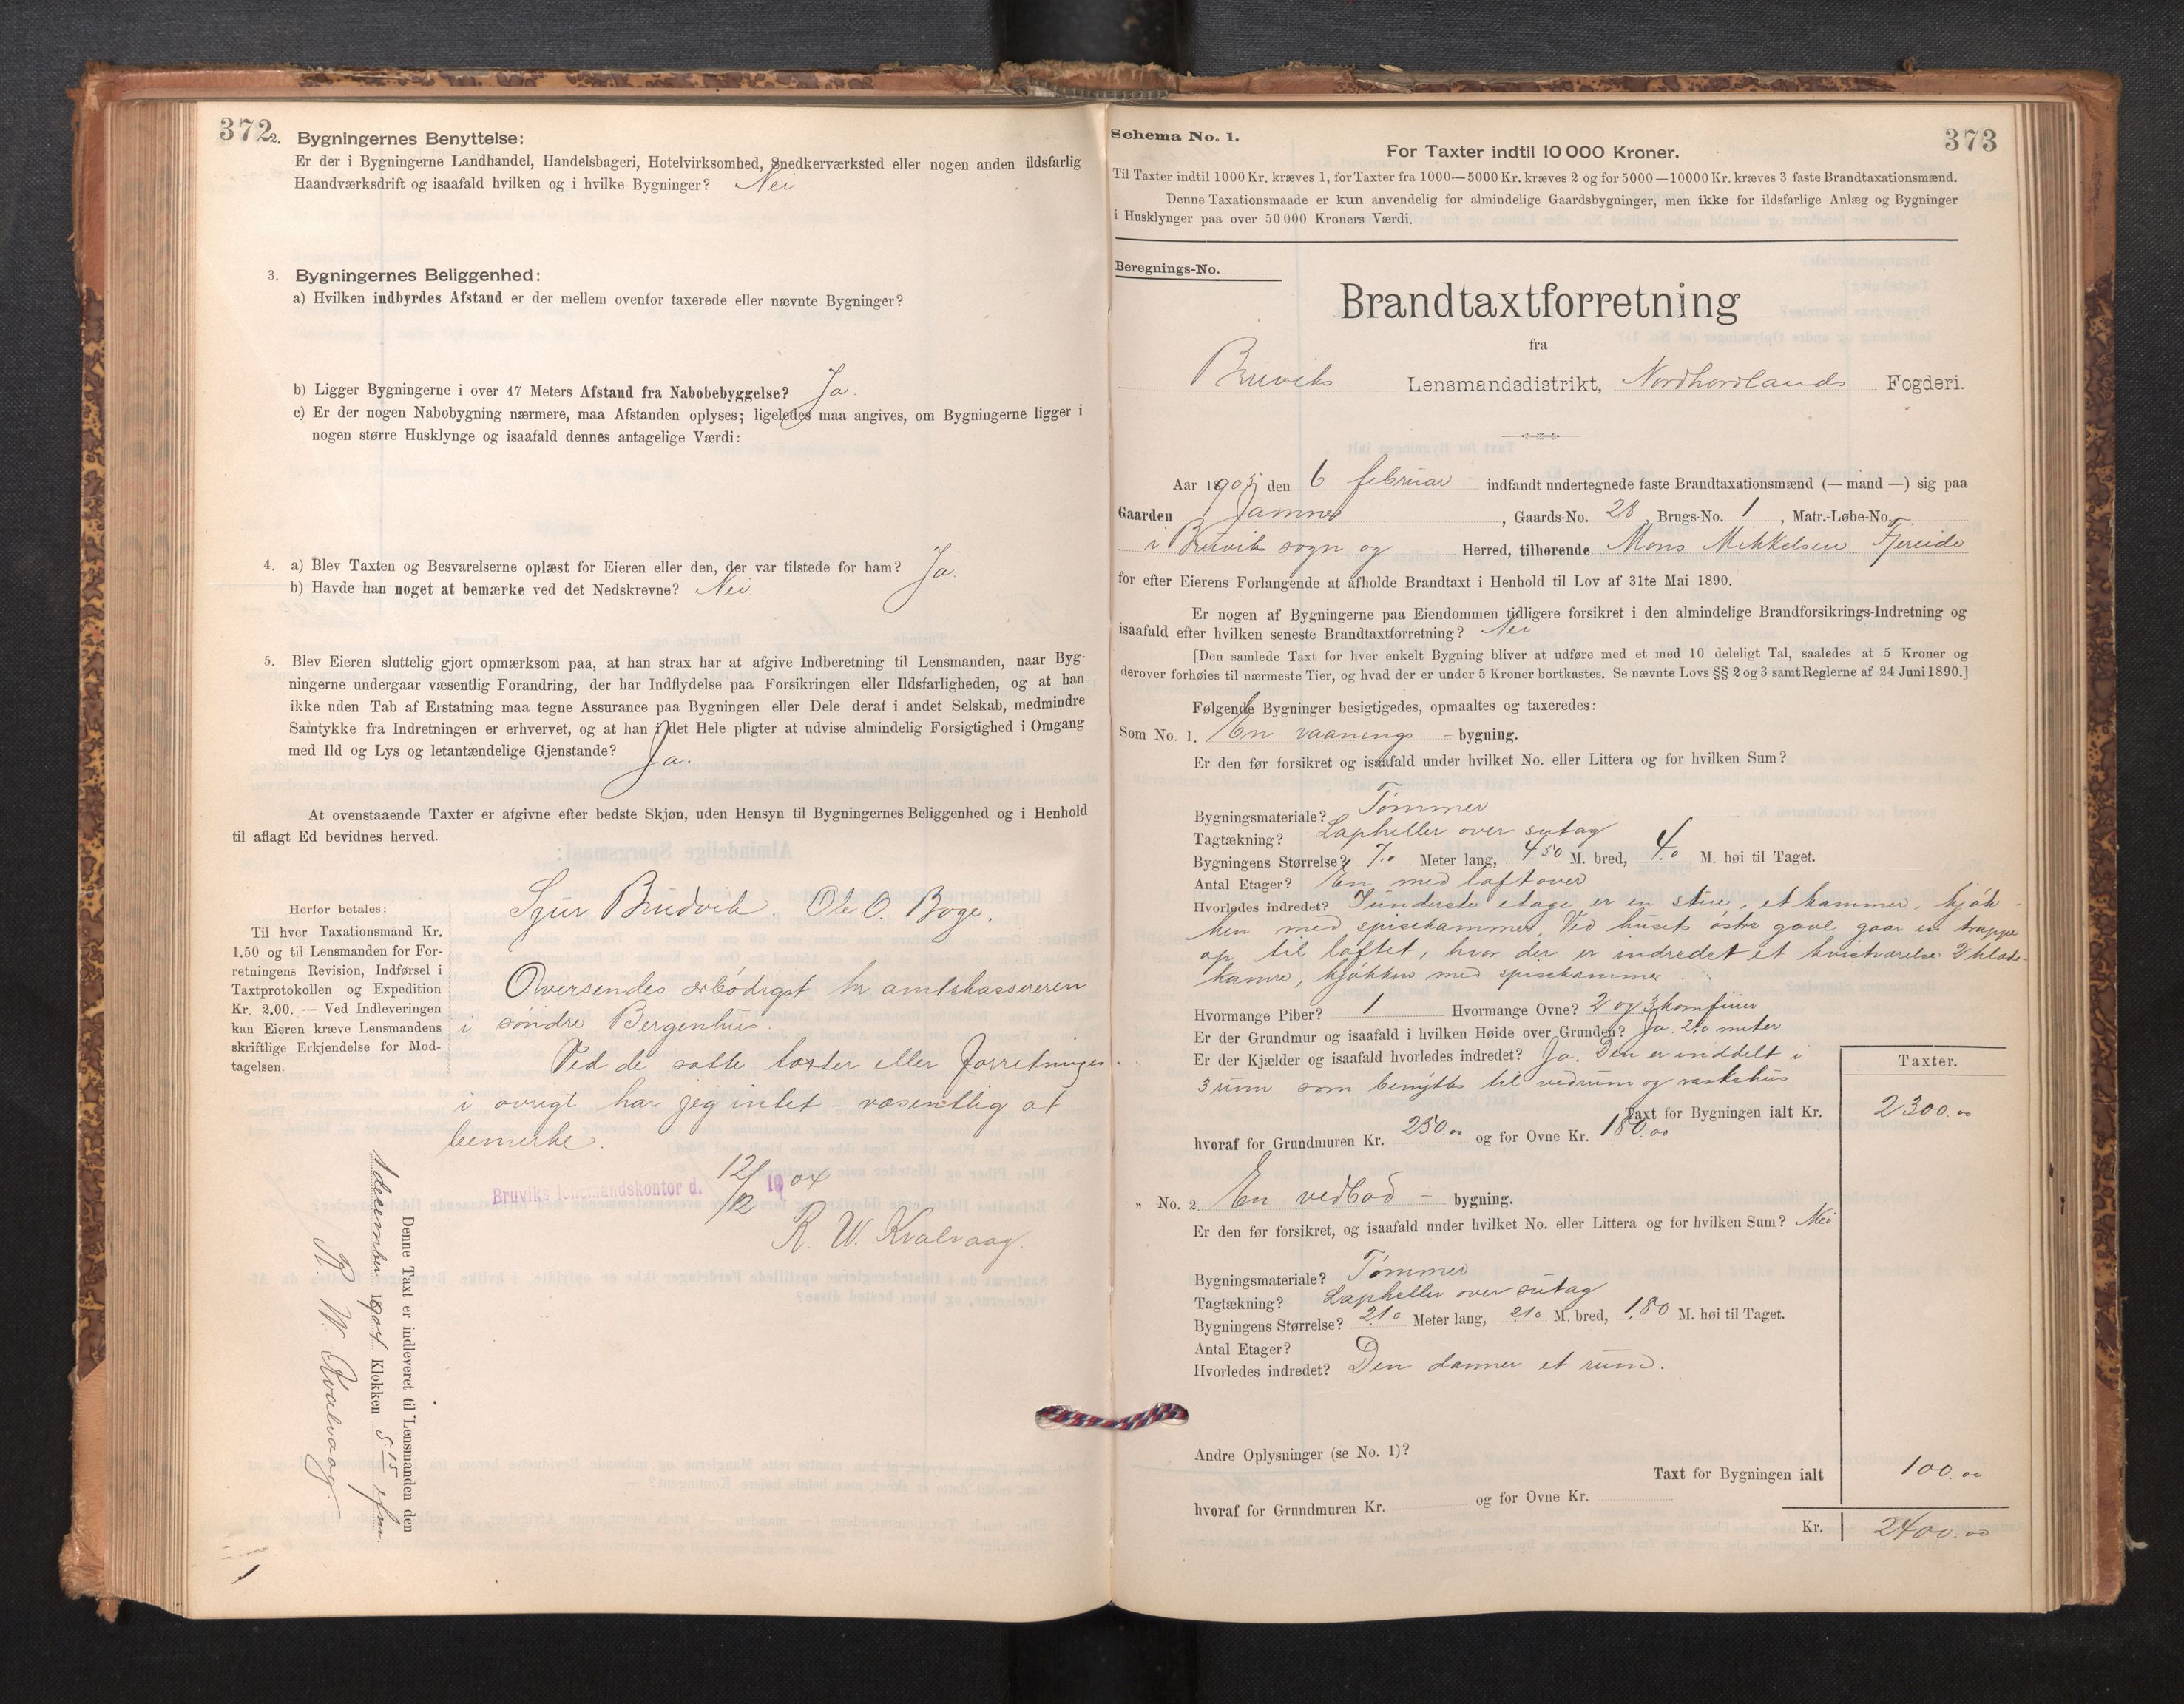 372
2. Bygningernes Benyttelse:
Er der i Bygningerne Landhandel, Handelsbageri, Hotelvirksomhed, Snedkerværksted eller nogen anden ildsfarlig
Haandværksdrift og isaafald hvilken og i hvilke Bygninger? Nei
3. Bygningernes Beliggenhed:
a) Hvilken indbyrdes Afstand er der mellem ovenfor taxerede eller nævnte Bygninger?
b) Ligger Bygningerne i over 47 Meters Afstand fra Nabobebyggelse? Ja.
c) Er der nogen Nabobygning nærmere, maa Afstanden oplyses; ligeledes maa angives, om Bygningerne ligger i
nogen større Husklynge og isaafald dennes antagelige Værdi:
4. a) Blev Taxten og Besvarelserne oplæst for Eieren eller den, der var tilstede for ham? Ja.
b) Havde han noget at bemærke ved det Nedskrevne? Nei
5. Blev Eieren sluttelig gjort opmærksom paa, at han strax har at afgive Indberetning til Lensmanden, naar Byg-
ningerne undergaar væsentlig Forandring, der har Indflydelse paa Forsikringen eller Ildsfarligheden, og at han
ikke uden Tab af Erstatning maa tegne Assurance paa Bygningen eller Dele deraf i andet Selskab, medmindre
Samtykke fra Indretningen er erhvervet, og at han i det Hele pligter at udvise almindelig Forsigtighed i Omgang
med Ild og Lys og letantændelige Gjenstande? Ja.
At ovenstaaende Taxter er afgivne efter bedste Skjøn, uden Hensyn til Bygningernes Beliggenhed og i Henhold
til aflagt Ed bevidnes herved.
Sjur Brudvik. Ole O. Boge.
Herfor betales:
Til hver Taxationsmand Kr.
1.50 og til Lensmanden for For-
retningens Revision, Indførsel i
Taxtprotokollen og Expedition
Kr. 2.00. — Ved Indleveringen
kan Eieren kræve Lensmandens
skriftlige Erkjendelse for Mod-
tagelsen.
Oversendes ærbødigst hr amtskassereren
i søndre Bergenhus.
Ved de satte taxter eller forretningen
i øvrigt har jeg intet væsentlig at
bemerke.
Bruviks lensmandskontor d. 12/12 1904
R. W. Kvalvaag.
Denne Taxt er indleveret til Lensmanden den
1 december 1904 Klokken 5.15 efm.
R. W. Kvalvaag.
373
Schema No. 1.
For Taxter indtil 10 000 Kroner.
Til Taxter indtil 1000 Kr. kræves 1, for Taxter fra 1000—5000 Kr. kræves 2 og for 5000—10000 Kr. kræves 3 faste Brandtaxationsmænd.
Denne Taxationsmaade er kun anvendelig for almindelige Gaardsbygninger, men ikke for ildsfarlige Anlæg og Bygninger
i Husklynger paa over 50 000 Kroners Værdi.
Beregnings-No.
Brandtaxtforretning
fra
Bruviks Lensmandsdistrikt, Nordhordlands Fogderi.
Aar 1905 den 6 februar indfandt undertegnede faste Brandtaxationsmænd (— mand —) sig paa
Gaarden Jamne , Gaards-No. 28, Brugs-No. 1, Matr.-Løbe-No.
i Bruvik sogn og Herred, tilhørende Mons Mikkelsen Fjereide
for efter Eierens Forlangende at afholde Brandtaxt i Henhold til Lov af 31te Mai 1890.
Er nogen af Bygningerne paa Eiendommen tidligere forsikret i den almindelige Brandforsikrings-Indretning og
isaafald efter hvilken seneste Brandtaxtforretning? Nei
[Den samlede Taxt for hver enkelt Bygning bliver at udføre med et med 10 deleligt Tal, saaledes at 5 Kroner og
derover forhøies til nærmeste Tier, og hvad der er under 5 Kroner bortkastes. Se nævnte Lovs §§ 2 og 3 samt Reglerne af 24 Juni 1890.]
Følgende Bygninger besigtigedes, opmaaltes og taxeredes:
Som No. 1. En vaanings - bygning.
Er den før forsikret og isaafald under hvilket No. eller Littera og for hvilken Sum?
Bygningsmateriale? Tømmer
Tagtækning? Lapheller over sutag
Bygningens Størrelse? 7.0 Meter lang, 4.50 M. bred, 4.0 M. høi til Taget.
Antal Etager? En med loft over
Hvorledes indredet? I underste etage er en stue, et kammer, kjøk-
ken med spisekammer, Ved husets østre gavl gaar en trappe
op til loftet, hvor der er indredet et kvistværelse 2 klæde-
kamre, kjøkken med spisekammer
Hvormange Piber? 1 Hvormange Ovne? 2 og 3 komfurer
Er der Grundmur og isaafald i hvilken Høide over Grunden? Ja. 2.0 meter
Er der Kjælder og isaafald hvorledes indredet? Ja. Den er inddelt i
3 rum som benyttes til vedrum og vaskehus
Taxter.
Taxt for Bygningen ialt Kr. 2300.00
hvoraf for Grundmuren Kr. 250.00 og for Ovne Kr. 180.00
„ No. 2. En vedbod - bygning.
Er den før forsikret, og isaafald under hvilket No. eller Littera og for hvilken Sum? Nei
Bygningsmateriale? Tømmer
Tagtækning? Lapheller over sutag
Bygningens Størrelse? 2.10 Meter lang, 2.10 M. bred, 1.80 M. høi til Taget.
Antal Etager?
Hvorledes indredet? Den danner et rum.
Andre Oplysninger (se No. 1)?
Taxt for Bygningen ialt 100.00
hvoraf for Grundmuren Kr. og for Ovne Kr.
Kr. 2400.00